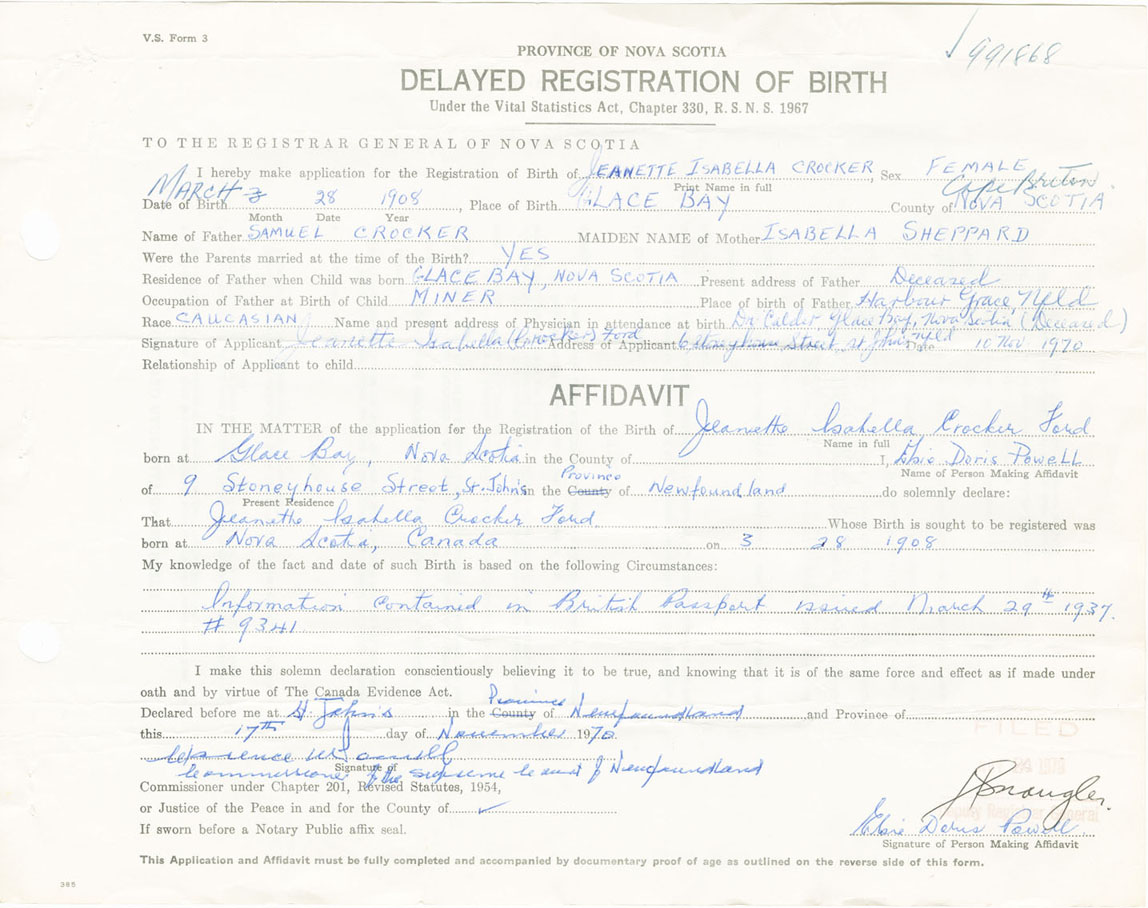 V.S. Form 3
991868
PROVINCE OF NOVA SCOTIA
DELAYED REGISTRATION OF BIRTH
Under the Vital Statistics Act, Chapter 330, R. S. N. S. 1967
TO THE REGISTRAR GENERAL OF NOVA SCOTIA
I hereby make application for the Registration of Birth of JEANETTE ISABELLA CROCKER, Sex FEMALE
Print Name in full
MARCH Cape Breton
Date of Birth 3 28 1908, Place of Birth GLACE BAY County of NOVA SCOTIA
Month Date Year
Name of Father SAMUEL CROCKER MAIDEN NAME of Mother ISABELLA SHEPPARD
Were the Parents married at the time of the Birth? YES
Residence of Father when Child was born GLACE BAY, NOVA SCOTIA Present address of Father Deceased
Occupation of Father at Birth of Child MINER Place of birth of Father Harbour Grace, Nfld
Race CAUCASIAN Name and present address of Physician in attendance at birth Dr Calder Glace Bay, Nova Scotia (Deceased)
Signature of Applicant Jeanette Isabella (Crocker) Ford Address of Applicant 6 Stoneyhouse Street, St John's Nfld Date 10 Nov 1970
Relationship of Applicant to child
AFFIDAVIT
IN THE MATTER of the application for the Registration of the Birth of Jeanette Isabella Crocker Ford
Name in full
born at Glace Bay, Nova Scotia in the County of I, Elsie Doris Powell
Name of Person Making Affidavit
Province
of 9 Stoneyhouse Street, St. John's in the County of Newfoundland do solemnly declare:
Present Residence
That Jeanette Isabella Crocker Ford Whose Birth is sought to be registered was
born at Nova Scotia, Canada on 3 28 1908
My knowledge of the fact and date of such Birth is based on the following Circumstances:
Information contained in British Passport issued March 29th 1937.
# 9341
I make this solemn declaration conscientiously believing it to be true, and knowing that it is of the same force and effect as if made under
oath and by virtue of The Canada Evidence Act.
Province
Declared before me at St. John's in the County of Newfoundland and Province of
this 17th day of November 1970
FILED
Signature of
Commissioner of the Supreme Court of Newfoundland
Commissioner under Chapter 201, Revised Statutes, 1954,
or Justice of the Peace in and for the County of
Deputy Registrar General
If sworn before a Notary Public affix seal.
Elsie Doris Powell
Signature of Person Making Affidavit
This Application and Affidavit must be fully completed and accompanied by documentary proof of age as outlined on the reverse side of this form.
385